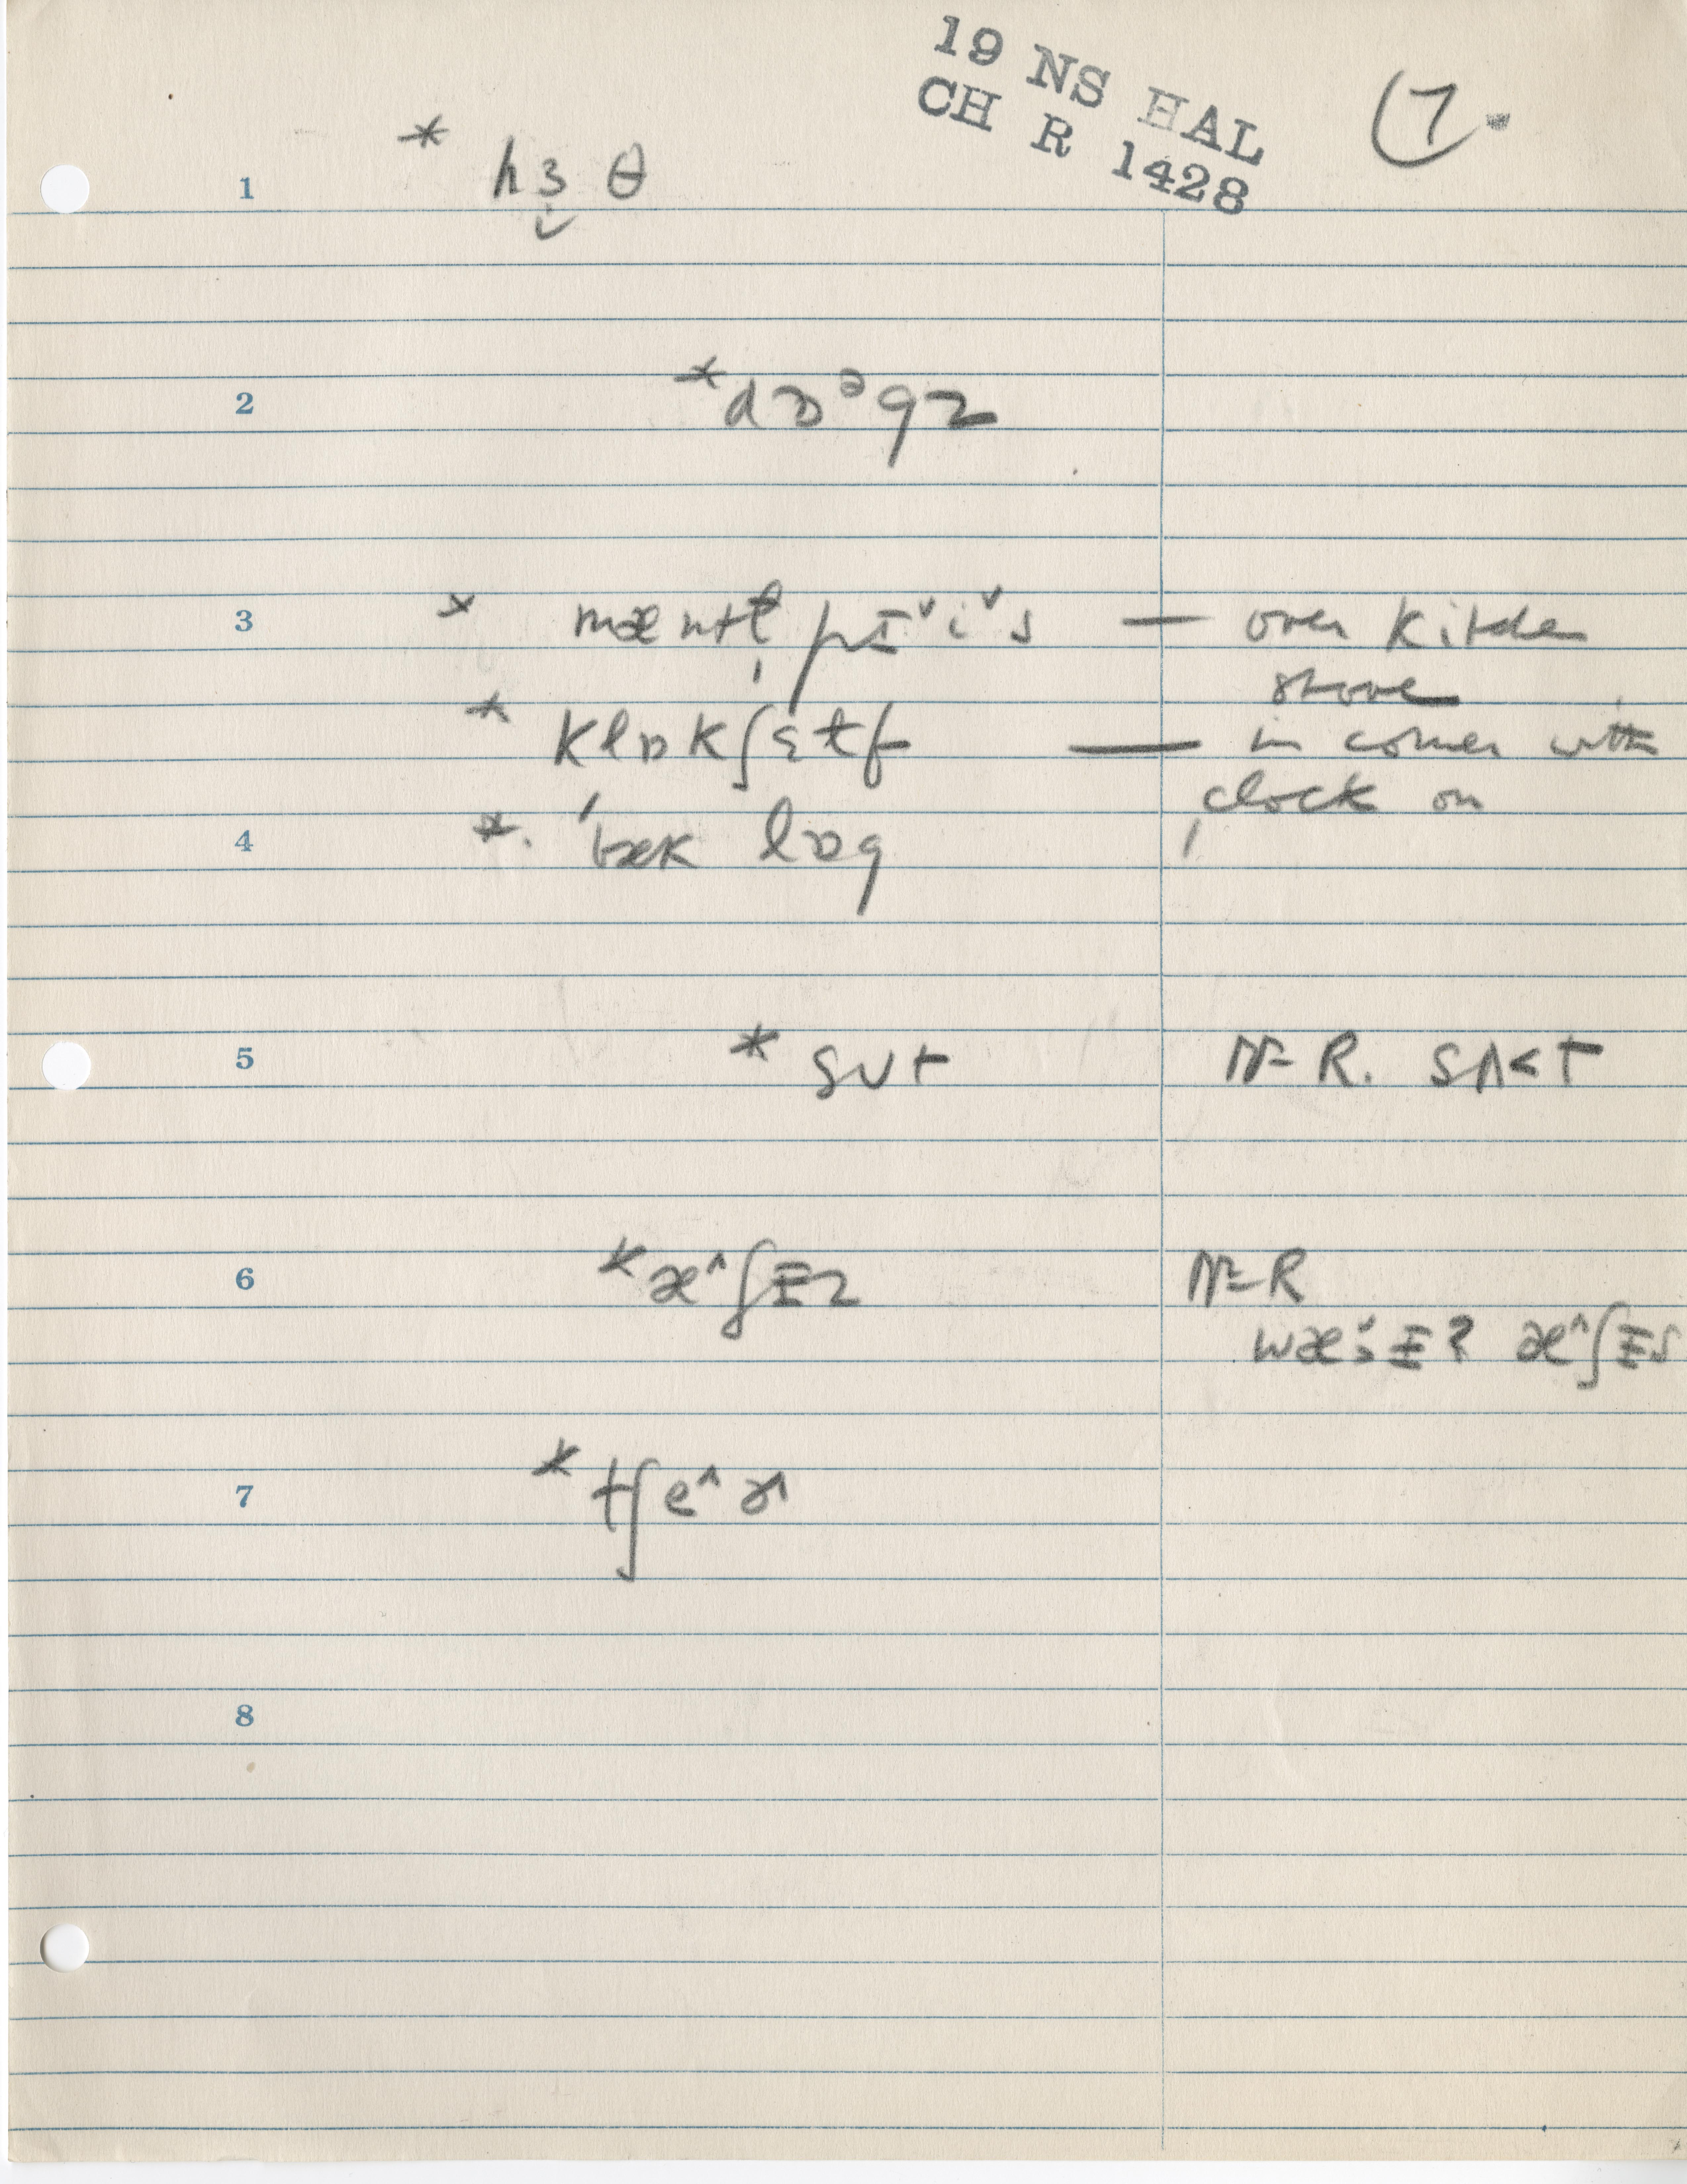 19 NS HAL
CH R 1428
7.
1 * hɜ̬ θ
2 *dɒᵊgz
3 * mæntl̩ pɪˇiˇs — over kitchen
stove
* klɒkʃɛlf — in corner with
clock on
4 *. ˈbæk lɒg
5 * sʊt N-R. sʌ<t
6 *æ^ʃɪz N-R
æ^ʃɪs
7 * tʃe^ɚ^
8